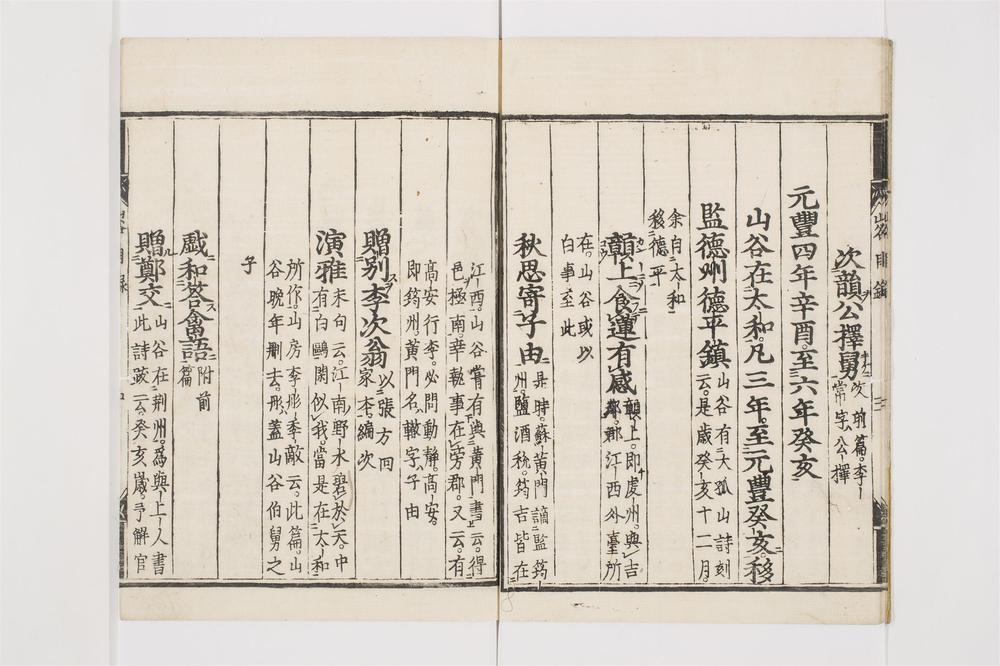 次韻公擇舅
攷前篇。李
常字公擇
元豐四年辛酉。至六年癸亥
山谷在太和。凡三年。至元豐癸亥。移
監德州德平鎮
山谷有大孤山詩刻
云。是歲癸亥十二月。
余自太和
移德平
贛上食蓮有感
贛上。即虔州。與吉
鄰郡。江西外臺所
在。山谷或以
白事至此
秋思寄子由
是時。蘇黃門謫監筠
州。鹽酒稅。筠吉皆在
江西。山谷嘗有與黃門書云。得
邑極南。幸執事在旁郡。又云。有
高安行李。必問動靜。高安。
即筠州。黃門名轍字子由
贈別李次翁
以張方回
家本編次
演雅
末句云。江南野水碧於天。中
有白鷗閑似我。當是在太和
所作。山房李彤季敵云。此篇。山
谷晚年刪去。彤。蓋山谷伯舅之
子
戲和答禽語
附前
篇
贈鄭交
山谷在荊州。爲與上人書
此詩跋云。癸亥歲。予解官
山谷目錄